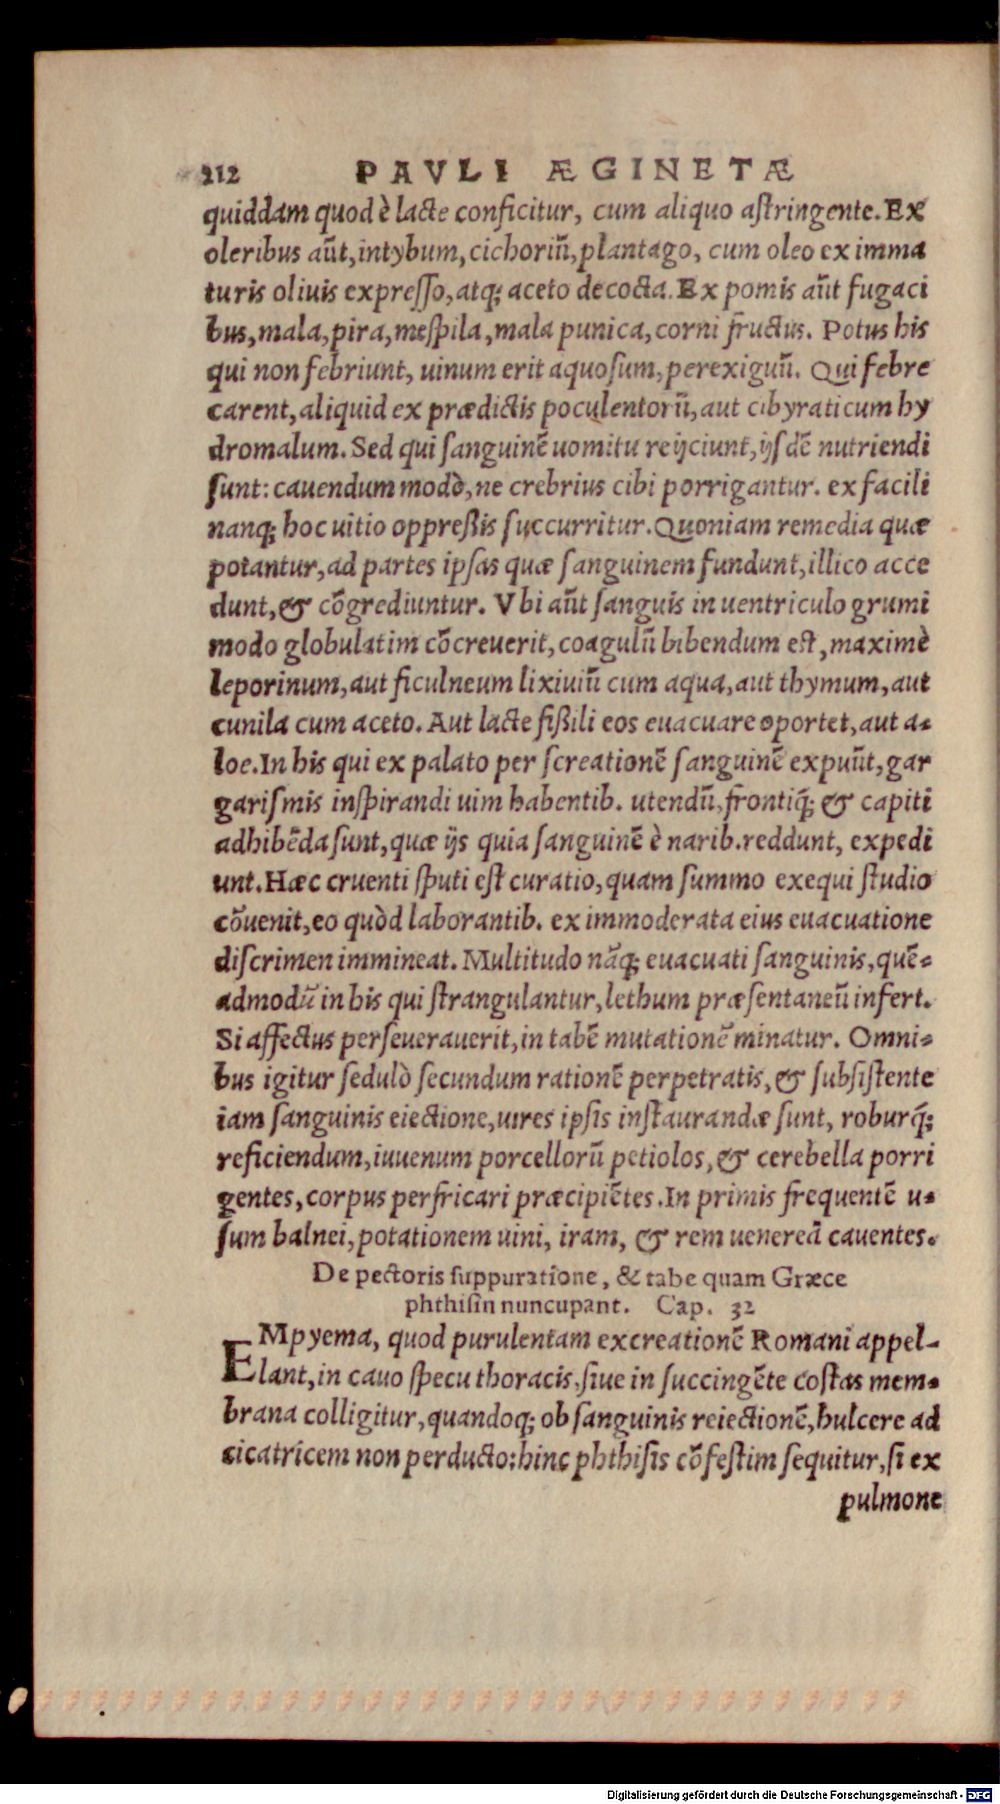 212 PAVLI ÆGINETÆ
quiddam quod è lacte conficitur, cum aliquo astringente. Ex
oleribus aũt, intybum, cichoriũ, plantago, cum oleo ex imma
turis oliuis expresso, atq; aceto decocta. Ex pomis aũt fugaci
bus, mala, pira, mespila, mala punica, corni fructus. Potus his
qui non febriunt, uinum erit aquosum, perexiguũ. Qui febre
carent, aliquid ex prædictis poculentorũ, aut cibyraticum hy
dromalum. Sed qui sanguinẽ uomitu reijciunt, ijsdẽ nutriendi
sunt: cauendum modò, ne crebrius cibi porrigantur. ex facili
nanq; hoc uitio oppreßis succurritur. Quoniam remedia quæ
potantur, ad partes ipsas quæ sanguinem fundunt, illico acce
dunt, & cõgrediuntur. Vbi aũt sanguis in uentriculo grumi
modo globulatim cõcreuerit, coagulũ bibendum est, maximè
leporinum, aut ficulneum lixiuiũ cum aqua, aut thymum, aut
cunila cum aceto. Aut lacte fißili eos euacuare oportet, aut a-
loe. In his qui ex palato per screationẽ sanguinẽ expuũt, gar
garismis inspirandi uim habentib. utendũ, frontiq́; & capiti
adhibẽda sunt, quæ ijs quia sanguinẽ è narib. reddunt, expedi
unt. Hæc cruenti sputi est curatio, quam summo exequi studio
cõuenit, eo quòd laborantib. ex immoderata eius euacuatione
discrimen immineat. Multitudo nãq; euacuati sanguinis, quẽ-
admodũ in his qui strangulantur, lethum præsentaneũ infert.
Si affectus perseuerauerit, in tabẽ mutationẽ minatur. Omni-
bus igitur sedulò secundum rationẽ perpetratis, & subsistente
iam sanguinis eiectione, uires ipsis instaurandæ sunt, roburq́;
reficiendum, iuuenum porcellorũ petiolos, & cerebella porri
gentes, corpus perfricari præcipiẽtes. In primis frequentẽ u-
sum balnei, potationem uini, iram, & rem uenereã cauentes.
De pectoris suppuratione, & tabe quam Græce
phthisin nuncupant. Cap. 32
EMpyema, quod purulentam excreationẽ Romani appel-
lant, in cauo specu thoracis, siue in succingẽte costas mem-
brana colligitur, quandoq; ob sanguinis reiectionẽ, hulcere ad
cicatricem non perducto: hinc phthisis cõfestim sequitur, si ex
pulmone
Digitalisierung gefördert durch die Deutsche Forschungsgemeinschaft - DFG